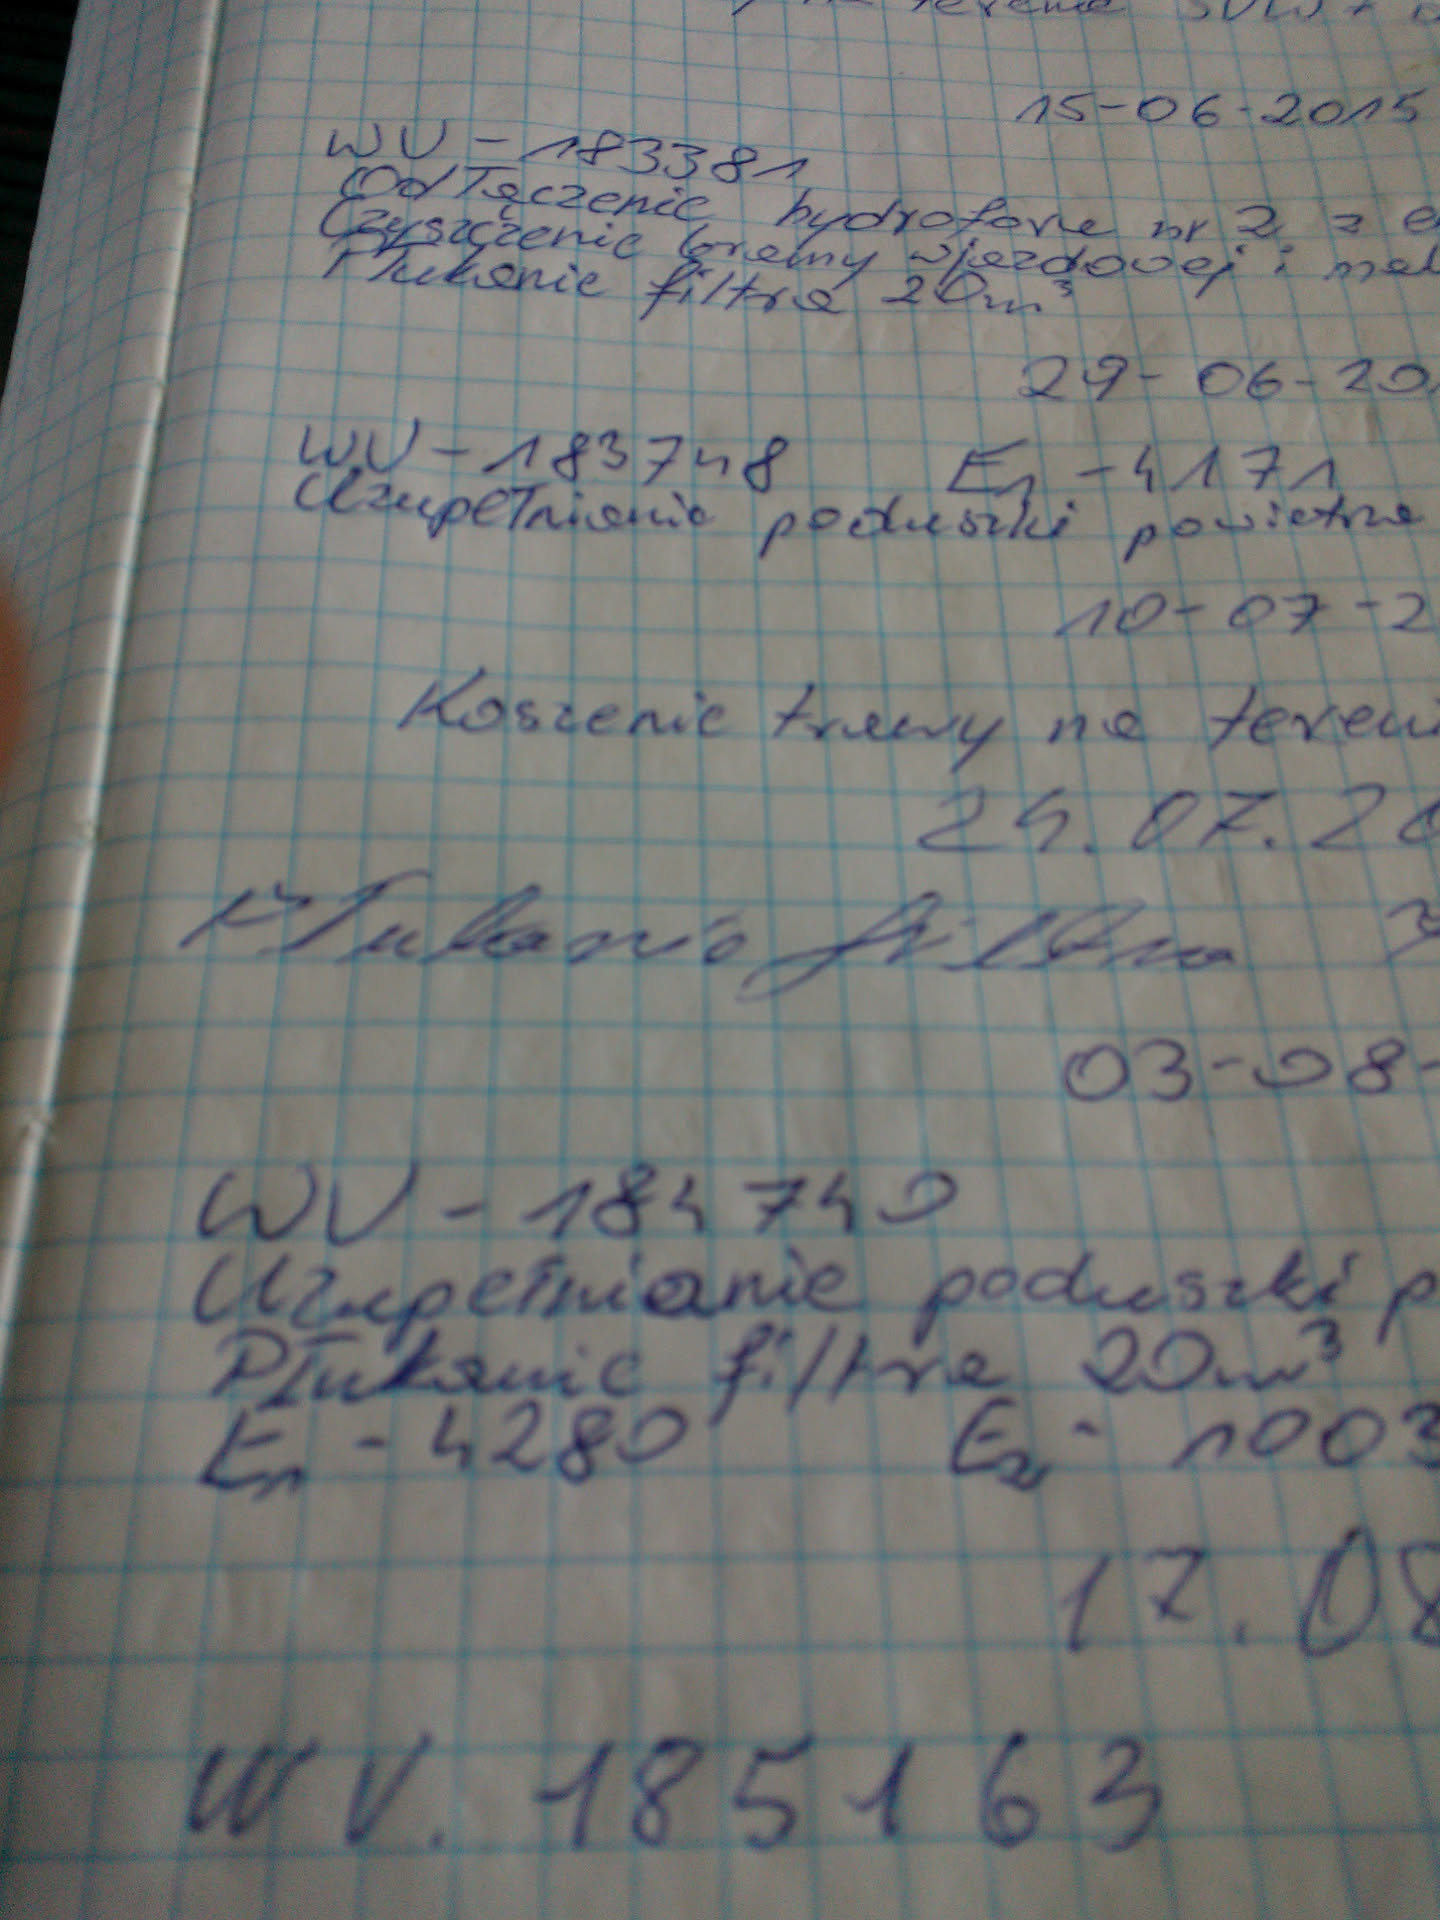 na terenie SUW
15-06-2015
WU - 183381
Odłączenie hydrofora nr 2 z e
Czyszczenie bramy wjazdowej i mal
Płukanie filtra 20m³
29-06-20
WU - 183748 E₁ - 4171
Uzupełnianie poduszki powietrza
10-07-2
Koszenie trawy na tereni
24.07.20
Płukanie filtra
03-08-
WU - 184740
Uzupełnianie poduszki p
Płukanie filtra 20m³
E₁ - 4280 E₂ - 1003
17.08
WU. 185163